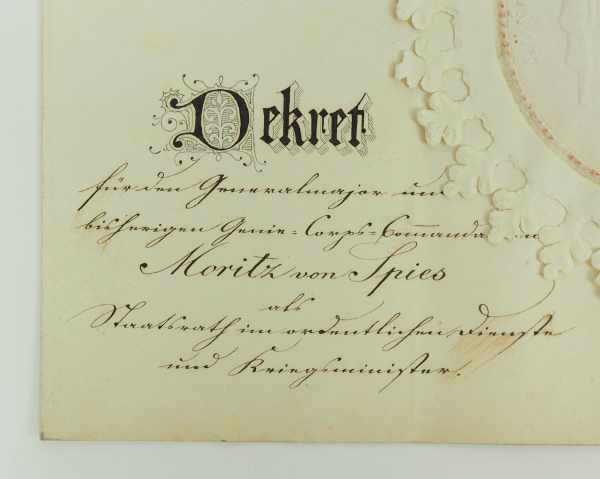 Dekret
für den Generalmajor und
bisherigen Genie=Corps=Commandanten
Moritz von Spies
als
Staatsrath im ordentlichen Dienste
und Kriegsminister.